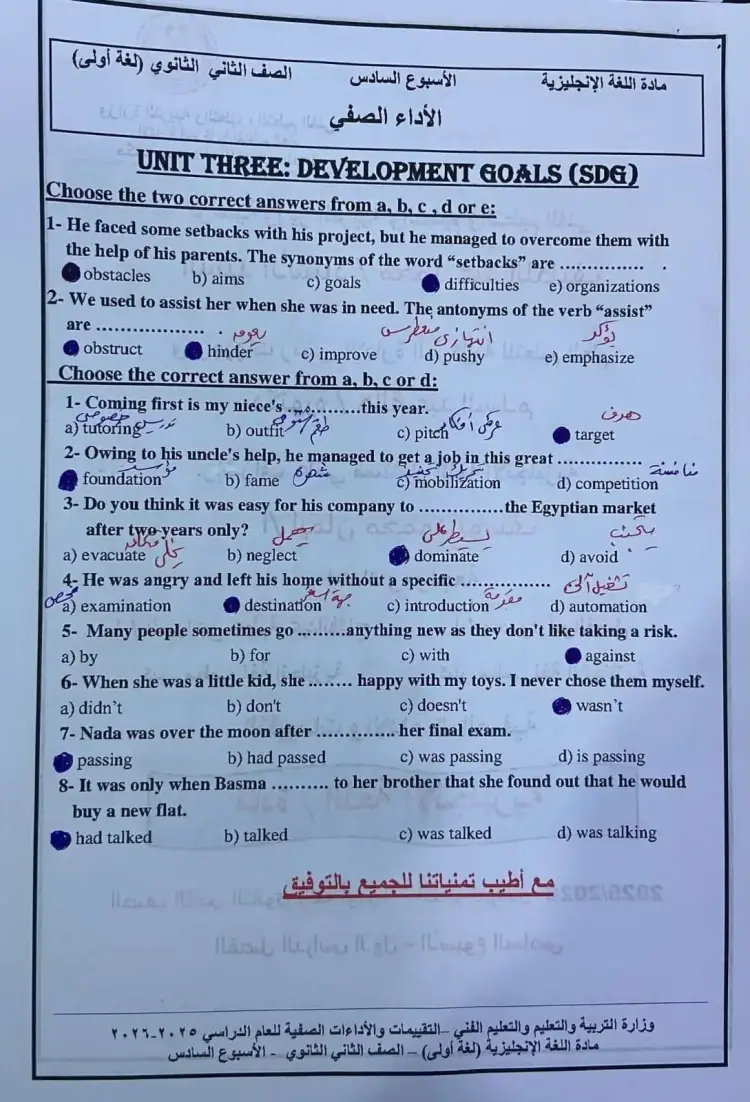 مادة اللغة الإنجليزية الأسبوع السادس الصف الثاني الثانوي (لغة أولى)
الأداء الصفي
UNIT THREE: DEVELOPMENT GOALS (SDG)
Choose the two correct answers from a, b, c , d or e:
1- He faced some setbacks with his project, but he managed to overcome them with
the help of his parents. The synonyms of the word “setbacks” are .............. .
obstacles b) aims c) goals difficulties e) organizations
2- We used to assist her when she was in need. The antonyms of the verb “assist”
are .................. .
يعوم متغطرس انتهازى يؤكد
obstruct hinder c) improve d) pushy e) emphasize
Choose the correct answer from a, b, c or d:
1- Coming first is my niece's ..............this year.
تدريس خصوصى عرض أفكار هدف
a) tutoring b) outfit c) pitch target
2- Owing to his uncle's help, he managed to get a job in this great ..............
مؤسسة شهرة منافسة
foundation b) fame c) mobilization d) competition
3- Do you think it was easy for his company to ...............the Egyptian market
after two years only?
يهمل يسيطر على يتجنب
a) evacuate b) neglect dominate d) avoid
4- He was angry and left his home without a specific ................
فحص مقدمة تشغيل آلى
a) examination destination c) introduction d) automation
5- Many people sometimes go .........anything new as they don't like taking a risk.
a) by b) for c) with against
6- When she was a little kid, she ........ happy with my toys. I never chose them myself.
a) didn’t b) don't c) doesn't wasn’t
7- Nada was over the moon after .............. her final exam.
passing b) had passed c) was passing d) is passing
8- It was only when Basma .......... to her brother that she found out that he would
buy a new flat.
had talked b) talked c) was talked d) was talking
مع أطيب تمنياتنا للجميع بالتوفيق
وزارة التربية والتعليم والتعليم الفني –التقييمات والأداءات الصفية للعام الدراسي ٢٠٢٥-٢٠٢٦
مادة اللغة الإنجليزية (لغة أولى) – الصف الثاني الثانوي - الأسبوع السادس